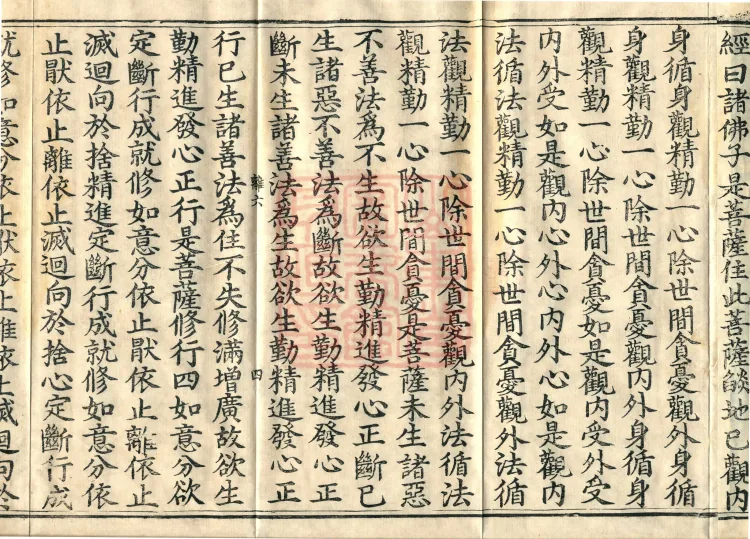 經曰諸佛子是菩薩住此菩薩燄地已觀內
身循身觀精勤一心除世間貪憂觀外身循
身觀精勤一心除世間貪憂觀內外身循身
觀精勤一心除世間貪憂如是觀內受外受
內外受如是觀內心外心內外心如是觀內
法循法觀精勤一心除世間貪憂觀外法循
法觀精勤一心除世間貪憂觀內外法循法
觀精勤一心除世間貪憂是菩薩未生諸惡
不善法為不生故欲生勤精進發心正斷已
生諸惡不善法為斷故欲生勤精進發心正
斷未生諸善法為生故欲生勤精進發心正
難六
四
行已生諸善法為住不失修滿增廣故欲生
勤精進發心正行是菩薩修行四如意分欲
定斷行成就修如意分依止猒依止離依止
滅迴向於捨精進定斷行成就修如意分依
止猒依止離依止滅迴向於捨心定斷行成
就修如意分依止猒依止離依止滅迴向於